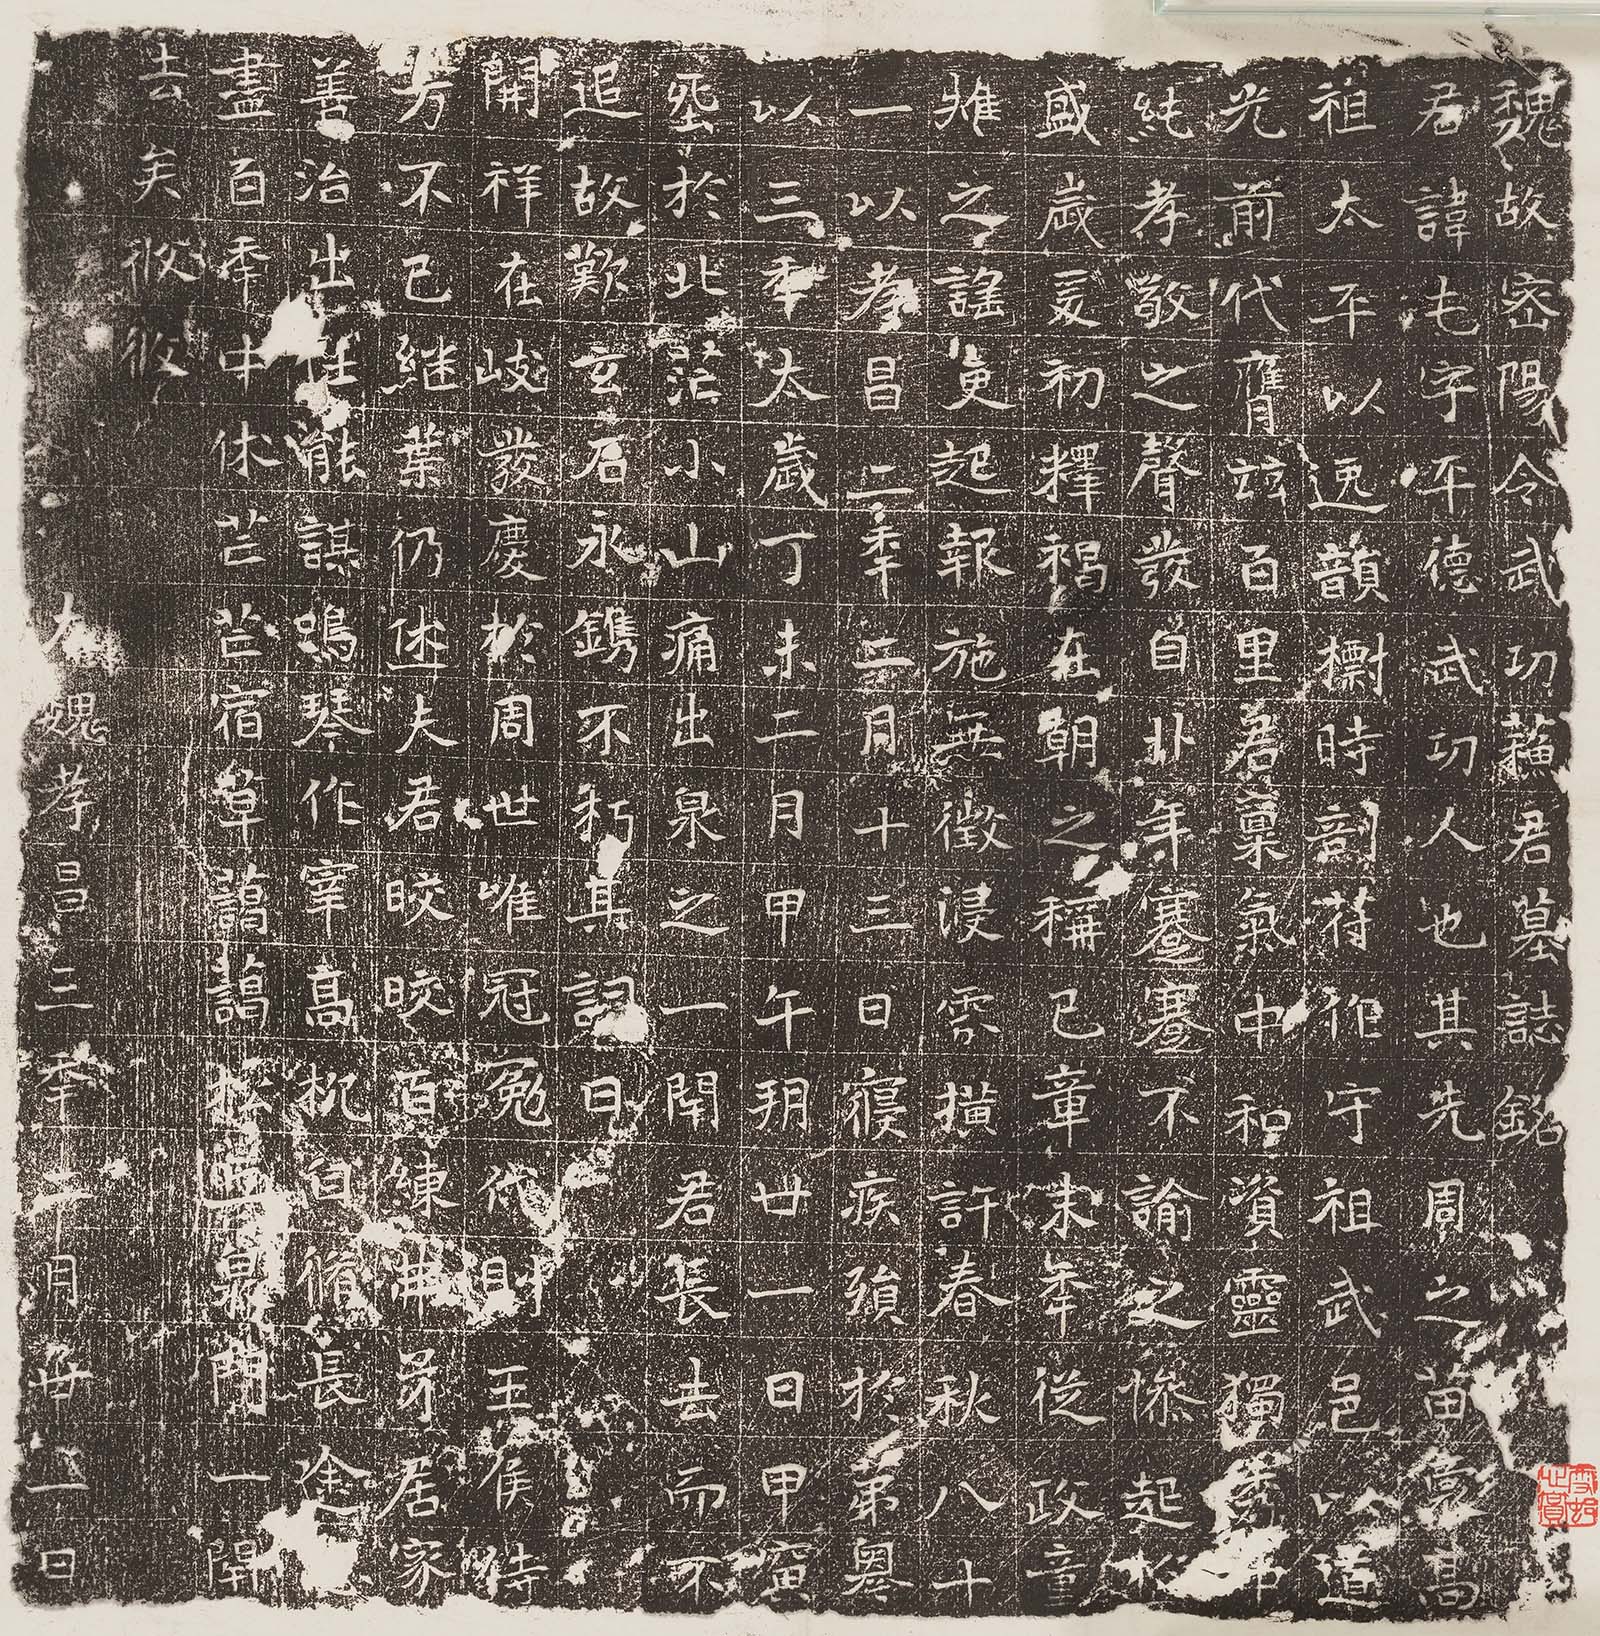 魏故密陽令武功蘇君墓誌銘
君諱屯字平德武功人也其先周之苗裔高
祖太平以逸韻標時剖苻作守祖武邑以道
光前代膺茲百里君稟氣中和資靈獨秀
純孝敬之聲發自丱年謇謇不諭之條起於
盛歲爰初釋褐在朝之稱已章未年從政童
雉之謠更起報施無徵浸雰撗許春秋八十
一以孝昌二年二月十三日寢疾殞於第粵
以三年太歲丁未二月甲午玥廿一日甲寅
窆於北茫小山痛出泉之一閇君長去而不
追故歎玄石永鐫不朽其詞曰
開祥在岐發慶於周世唯冠冕代財王侯待
方不已継業仍述夫君晈晈百練弗界居家
善治出任能謀鳴琴作宰髙枕自脩長途
盡百年中休芒芒宿草藹藹松泉門一閇
去矣攸攸
大魏孝昌三年二月廿一日